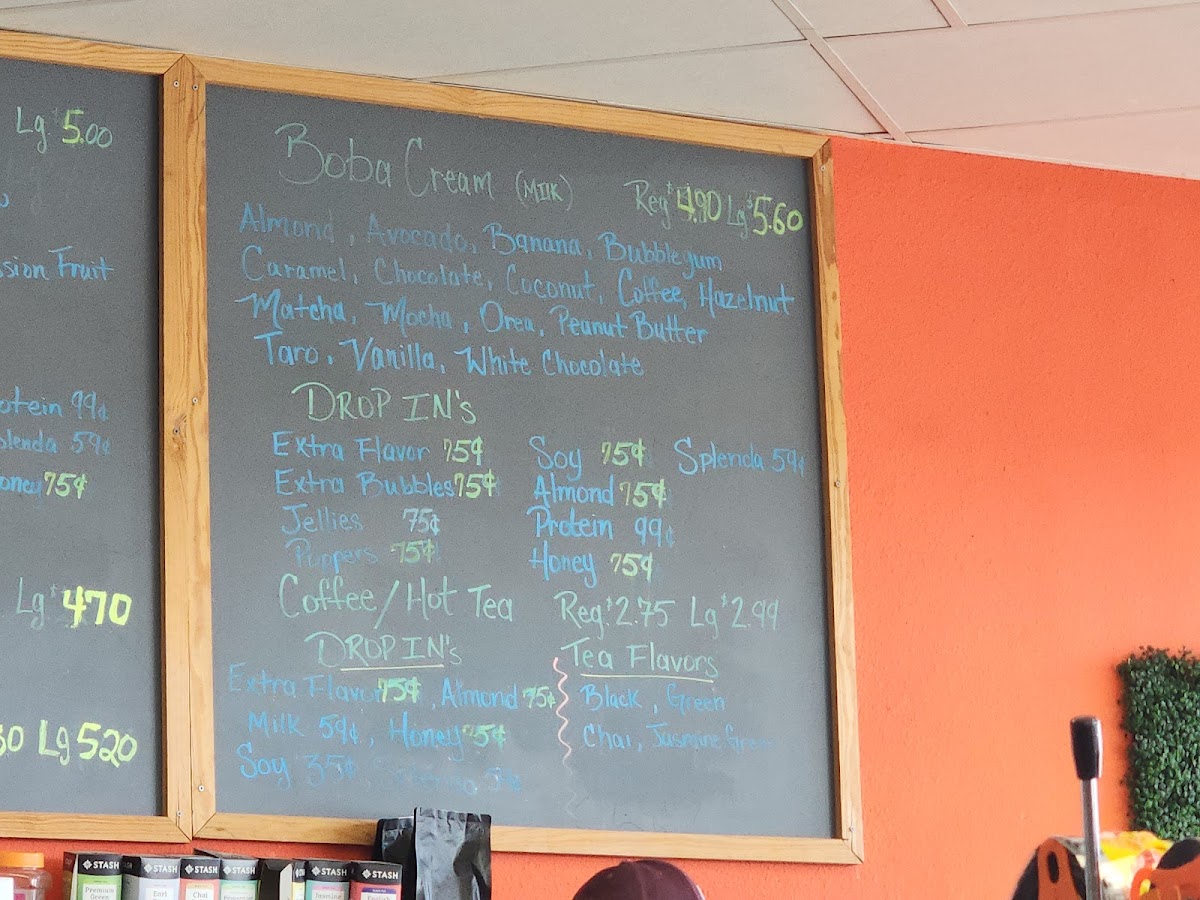 Lg $5.00
ssion Fruit
otein 99¢
plenda 59¢
oney 75¢
Lg $4.70
30 Lg 5.20
Boba Cream (MILK) Reg $4.90 Lg $5.60
Almond, Avocado, Banana, Bubblegum
Caramel, Chocolate, Coconut, Coffee, Hazelnut
Matcha, Mocha, Oreo, Peanut Butter
Taro, Vanilla, White Chocolate
DROP IN's
Extra Flavor 75¢ Soy 75¢ Splenda 59¢
Extra Bubbles 75¢ Almond 75¢
Jellies 75¢ Protein 99¢
Poppers 75¢ Honey 75¢
Coffee/Hot Tea Reg $2.75 Lg $2.99
DROP IN's Tea Flavors
Extra Flavor 75¢, Almond 75¢ Black, Green
Milk 59¢, Honey 75¢ Chai, Jasmine Green
Soy 35¢
STASH STASH STASH STASH STASH STASH
Premium Green Earl Chai Jasmine English